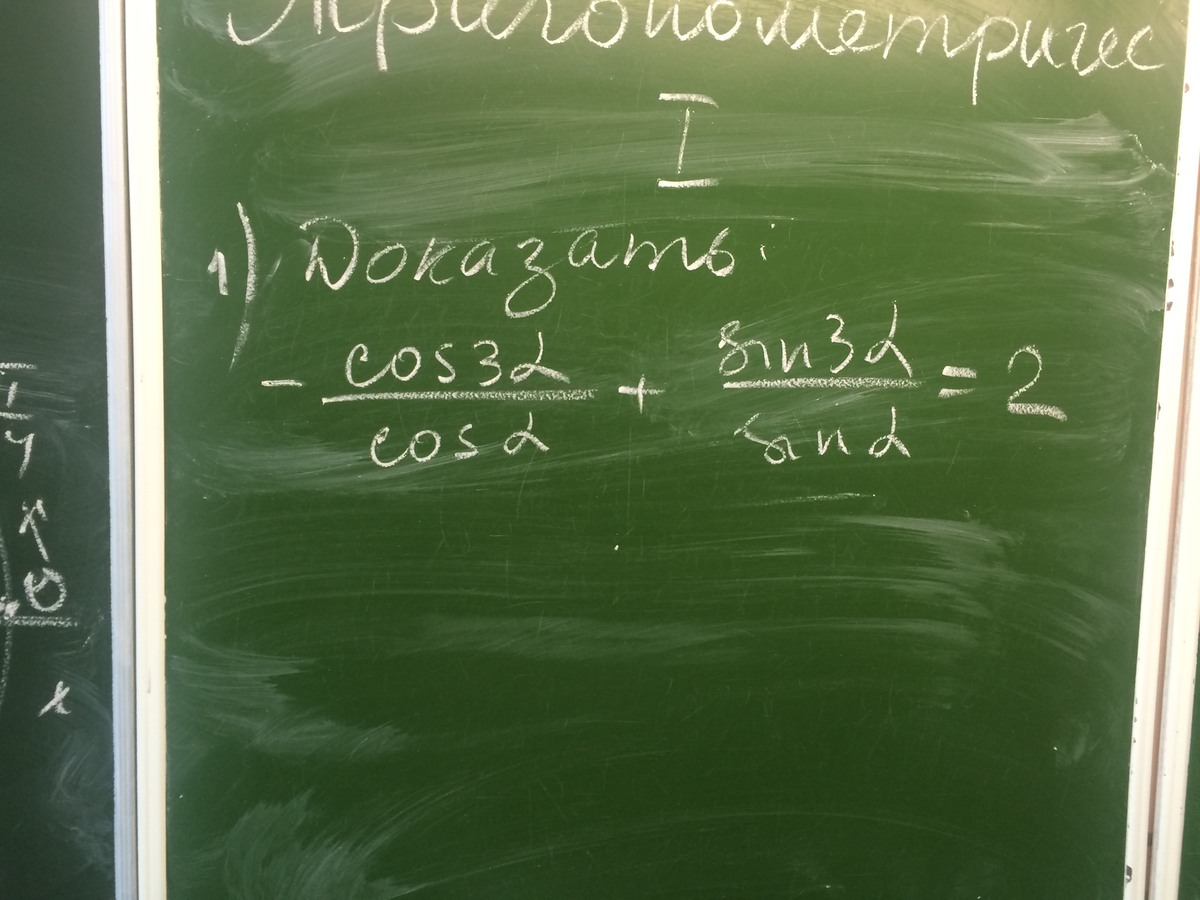 Тригонометричес
I
1) Доказать:
- cos3α/cosα + sin3α/sinα = 2